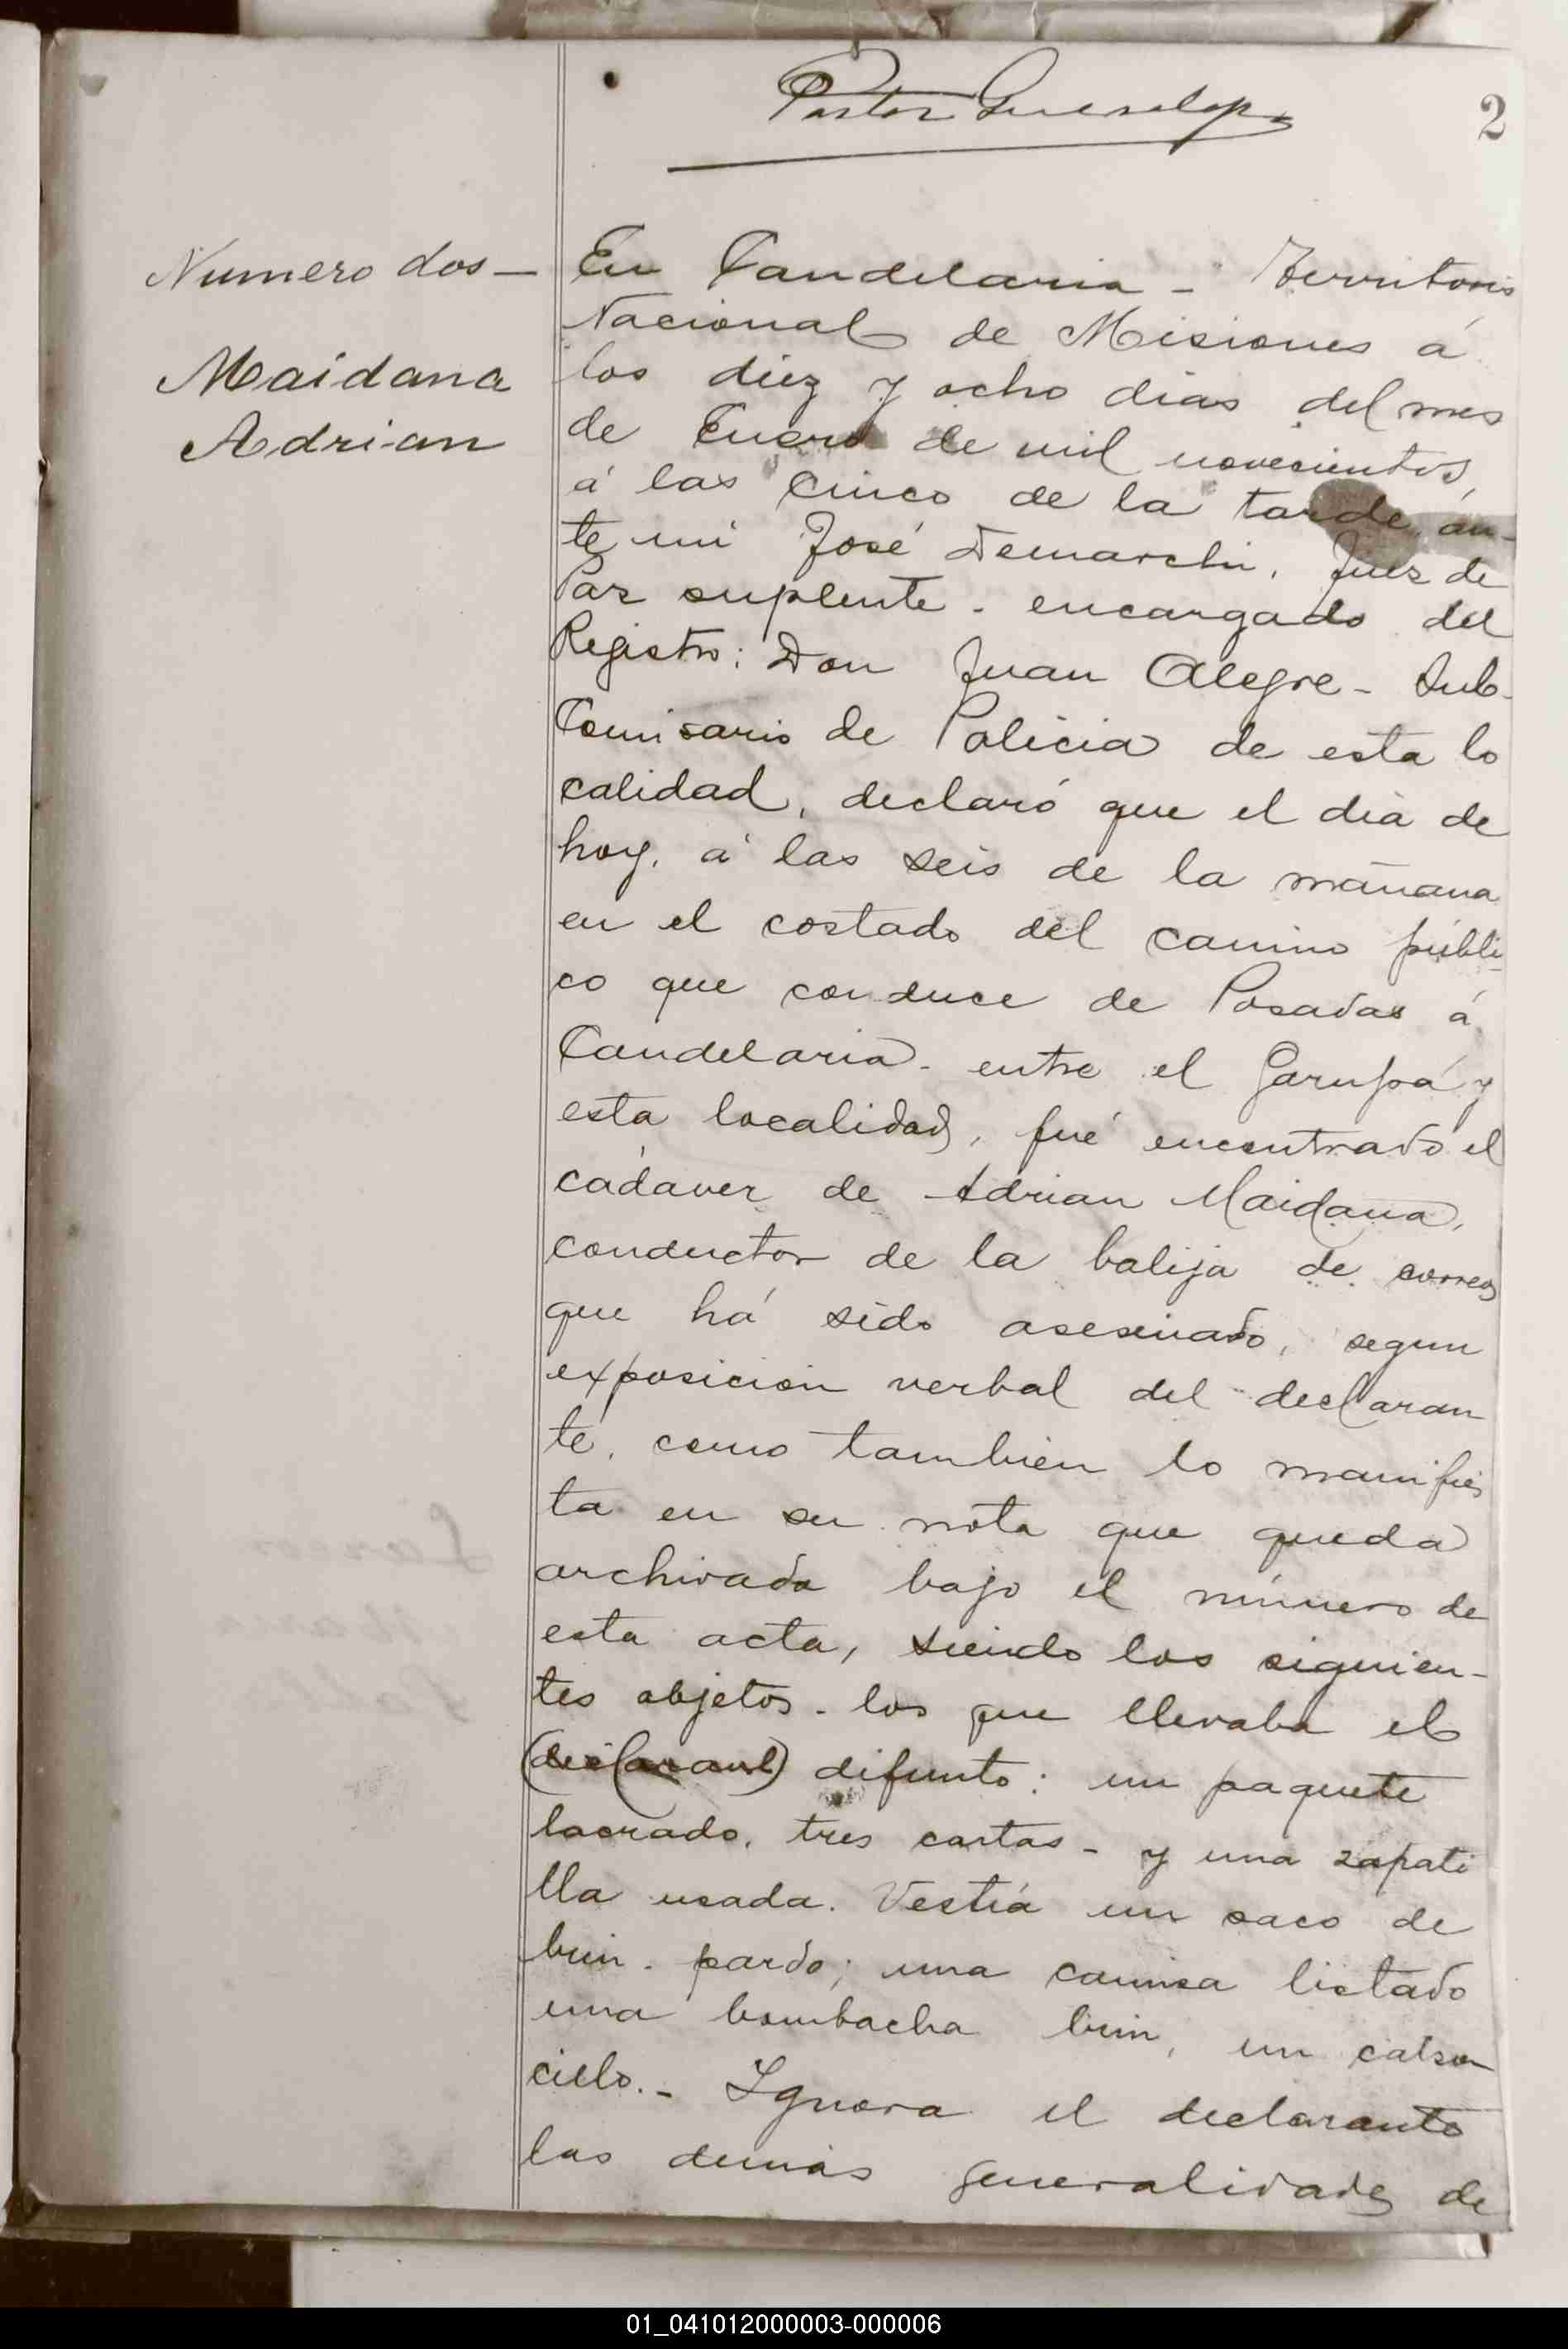 Pastor
2
Numero dos —
Maidana
Adrian
En Candelaria - Territorio
Nacional de Misiones á
los diez y ocho dias del mes
de Enero de mil novecientos,
á las cinco de la tarde, an-
te mi José Demarchi, Juez de
Paz suplente - encargado del
Registro: Don Juan Alegre - Sub-
Comisario de Policia de esta lo
calidad, declaró que el dia de
hoy, á las seis de la mañana
en el costado del camino públi-
co que conduce de Posadas á
Candelaria - entre el Garupá y
esta localidad, fué encontrado el
cadaver de Adrian Maidana,
conductor de la balija de correos
que há sido asesinado, segun
exposicion verbal del declaran
te, como tambien lo manifies
ta en su nota que queda
archivada bajo el número de
esta acta, siendo los siguien-
tes objetos - los que llevaba el
(declarant) difunto: un paquete
lacrado, tres cartas - y una zapati
lla usada. Vestia un saco de
brin - pardo; una camisa listado
una bombacha brin, un calson
cielo. - Ignora el declarante
las demás generalidades de
01_041012000003-000006